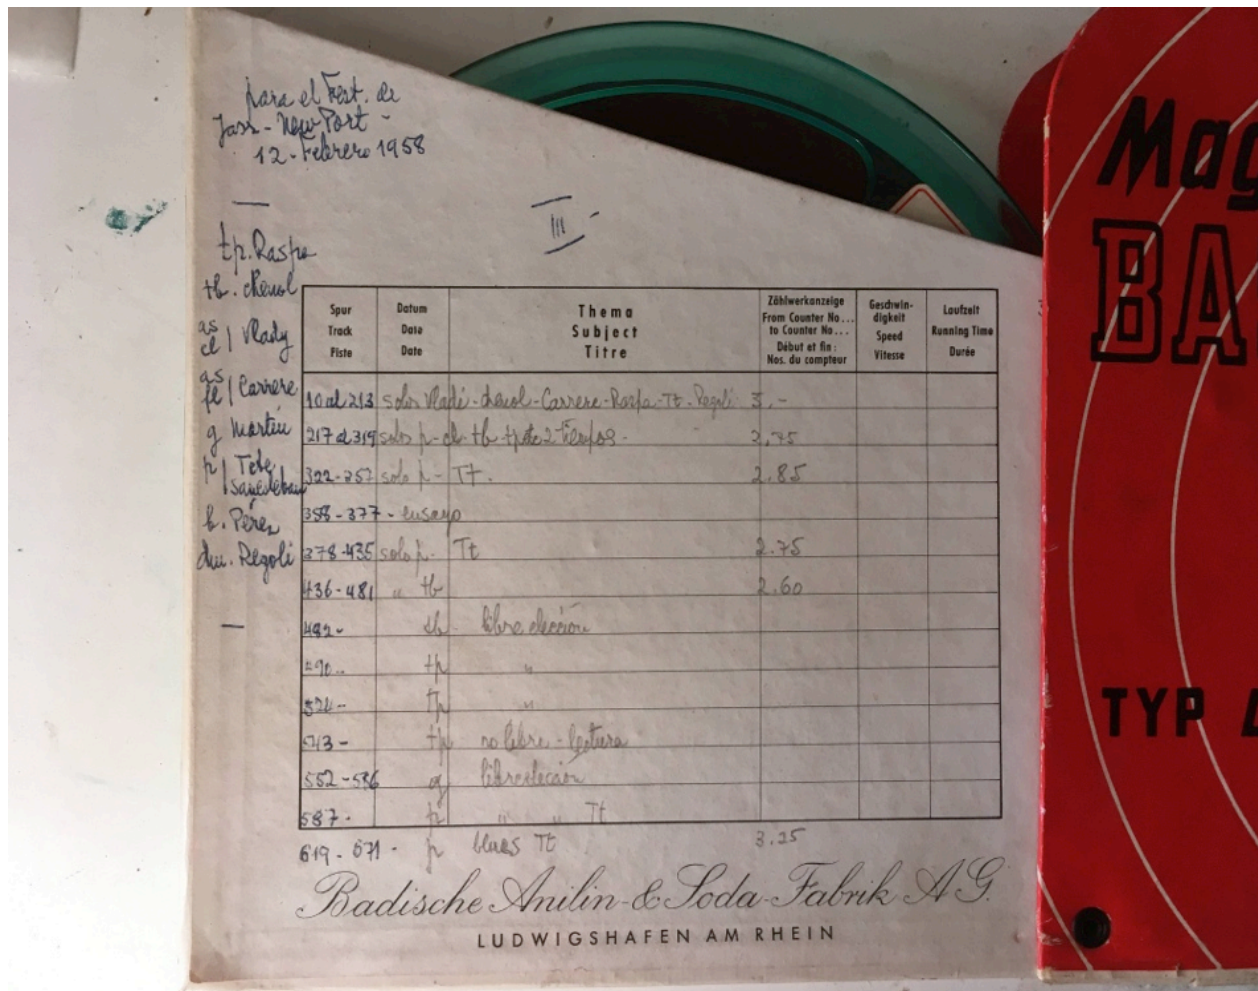 para el Fest. de
Jass - New Port -
12 - Febrero 1958
III
tp. Raspa
tb. chenol
as
cl | Vlady
as
fl | Carrere
g Martín
p | Tete
b. Pérez
dm. Regoli
Spur
Track
Piste
Datum
Date
Date
Thema
Subject
Titre
Zählwerkanzeige
From Counter No...
to Counter No...
Début et fin:
Nos. du compteur
Geschwin-
digkeit
Speed
Vitesse
Laufzeit
Running Time
Durée
10 al 213 solos Vladi - chenol - Carrere - Raspa - Tt - Regoli 3.-
217 al 319 solo p - cl - tb - tpta 2 tiempos - 2,75
322-357 solo p - Tt. 2.85
358-377 - ensayo
378-435 solo p - Tt 2.75
436-481 " tb 2.60
482 - tb - libre elección
490 - tp "
524 - tp "
543 - tp no libre - lectura
552-586 g libre elección
587 - p " " Tt
619 - 671 - p blues Tt 3.25
Badische Anilin- & Soda-Fabrik AG.
LUDWIGSHAFEN AM RHEIN
Mag
BA
TYP